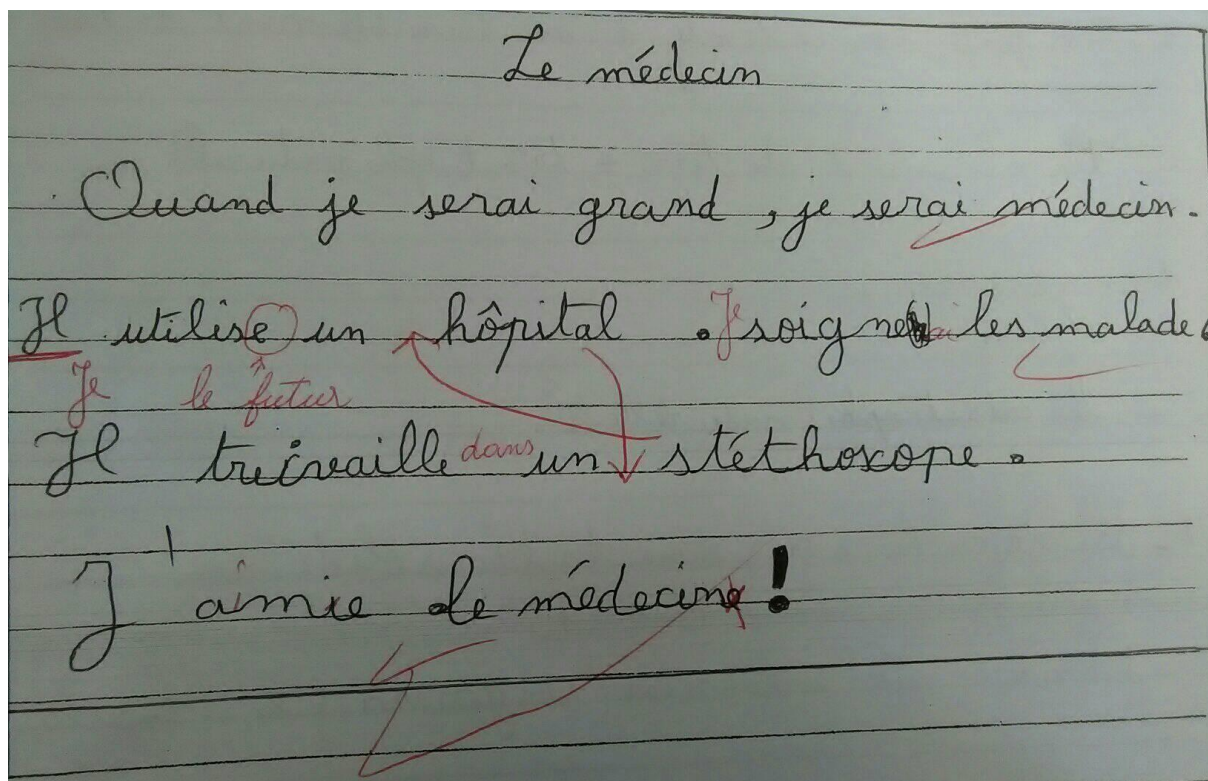 Le médecin
Quand je serai grand, je serai médecin.
Il utilise un hôpital . Je soigne les malade.
Je le futur
Il treivaille dans un stéthoscope.
J'aimie le médecine!